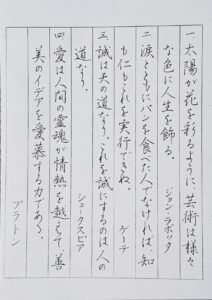 一 太陽が花を彩るように、芸術は様々
な色に人生を飾る。
ジョン・ラボック
二 涙とともにパンを食べた人でなければ、知
も仁もこれを実行できぬ。
ゲーテ
三 誠は天の道なり。これを誠にするのは人の
道なり。
シェクスピア
四 愛は人間の霊魂が情熱を越えて、善
美のイデアを愛慕する力である。
プラトン